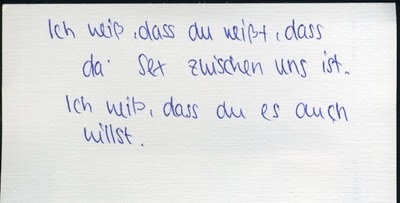 Ich weiß, dass du weißt, dass
da Sex zwischen uns ist.
Ich weiß, dass du es auch
willst.